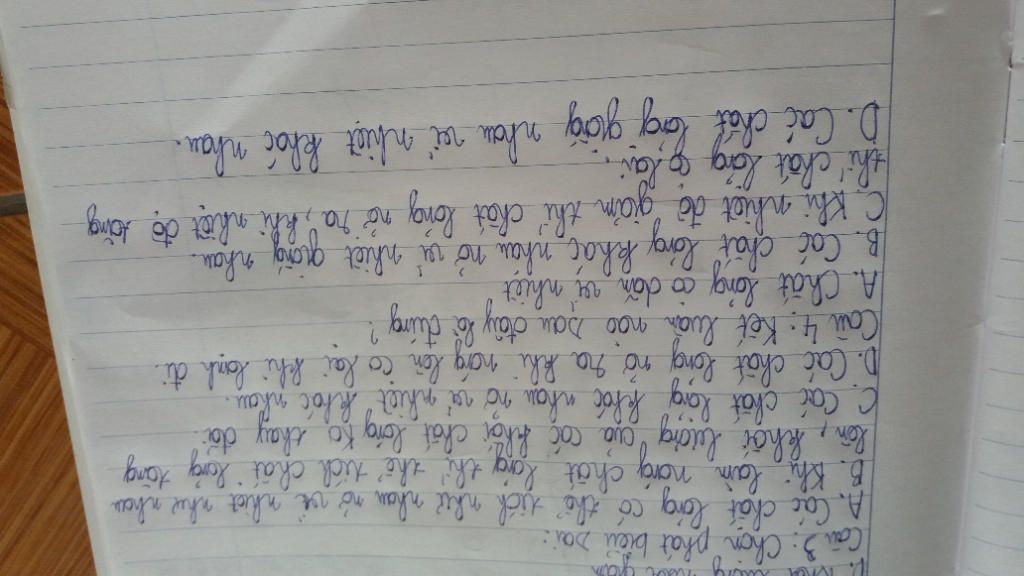 D. Khối lượng
Câu 3: Chọn phát biểu sai:
A. Các chất lỏng có thể tích như nhau nở vì nhiệt như nhau
B. Khi làm nóng chất lỏng thì thể tích chất lỏng tăng
lên, khối lượng của các khối chất lỏng ko thay đổi
C. Các chất lỏng khác nhau nở vì nhiệt khác nhau.
D. Các chất lỏng nở ra khi nóng lên co lại khi lạnh đi.
Câu 4: Kết luận nào sau đây là đúng?
A. Chất lỏng co dãn vì nhiệt
B. Các chất lỏng khác nhau nở vì nhiệt giống nhau.
C. Khi nhiệt độ giảm thì chất lỏng nở ra, khi nhiệt độ tăng
thì chất lỏng co lại.
D. Các chất lỏng giống nhau nở vì nhiệt khác nhau.